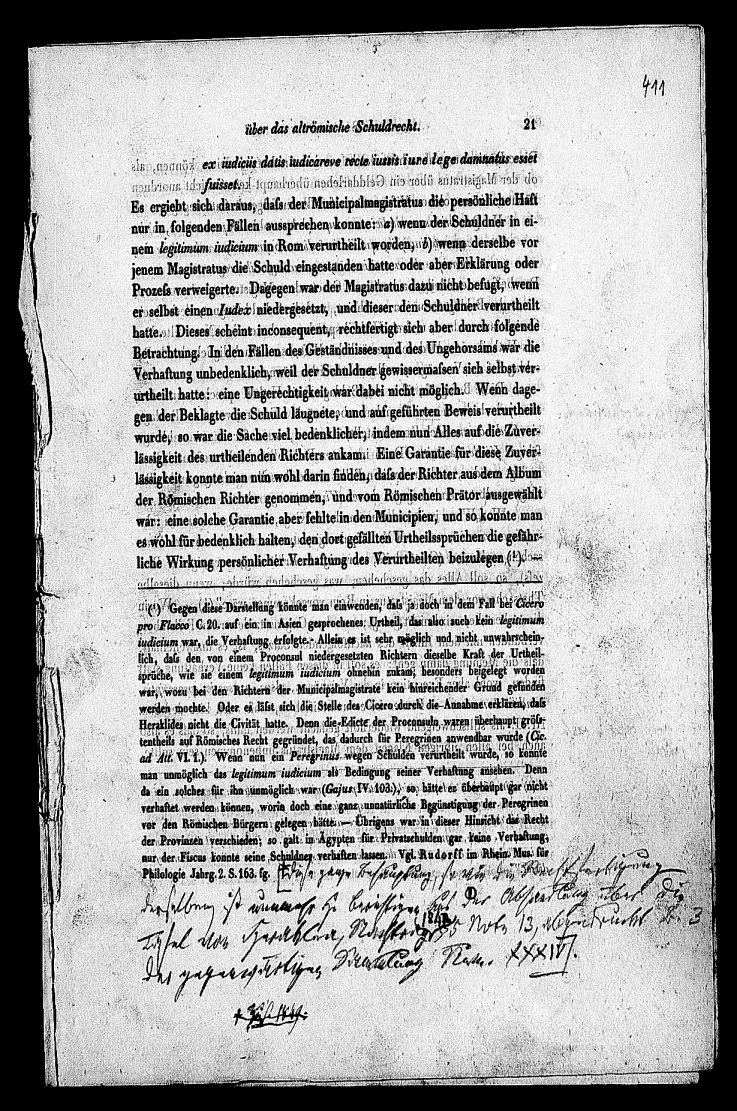 411
über das altrömische Schuldrecht. 21
ex iudiciis datis iudicareve recte iussis iure lege damnatus esset
fuisset.
Es ergiebt sich daraus, daſs der Municipalmagistratus die persönliche Haft
nur in folgenden Fällen aussprechen konnte: a) wenn der Schuldner in ei-
nem legitimum iudicium in Rom verurtheilt worden, b) wenn derselbe vor
jenem Magistratus die Schuld eingestanden hatte oder aber Erklärung oder
Prozeſs verweigerte. Dagegen war der Magistratus dazu nicht befugt, wenn
er selbst einen Iudex niedergesetzt, und dieser den Schuldner verurtheilt
hatte. Dieses scheint inconsequent, rechtfertigt sich aber durch folgende
Betrachtung. In den Fällen des Geständnisses und des Ungehorsams war die
Verhaftung unbedenklich, weil der Schuldner gewissermaſsen sich selbst ver-
urtheilt hatte: eine Ungerechtigkeit war dabei nicht möglich. Wenn dage-
gen der Beklagte die Schuld läugnete, und auf geführten Beweis verurtheilt
wurde, so war die Sache viel bedenklicher, indem nun Alles auf die Zuver-
lässigkeit des urtheilenden Richters ankam. Eine Garantie für diese Zuver-
lässigkeit konnte man nun wohl darin finden, daſs der Richter aus dem Album
der Römischen Richter genommen, und vom Römischen Prätor ausgewählt
war: eine solche Garantie aber fehlte in den Municipien, und so konnte man
es wohl für bedenklich halten, den dort gefällten Urtheilssprüchen die gefähr-
liche Wirkung persönlicher Verhaftung des Verurtheilten beizulegen (¹).
(¹) Gegen diese Darstellung könnte man einwenden, daſs ja doch in dem Fall bei Cicero
pro Flacco C. 20. auf ein in Asien gesprochenes Urtheil, das also auch kein legitimum
iudicium war, die Verhaftung erfolgte. Allein es ist sehr möglich und nicht unwahrschein-
lich, daſs den von einem Proconsul niedergesetzten Richtern dieselbe Kraft der Urtheil-
sprüche, wie sie einem legitimum iudicium ohnehin zukam, besonders beigelegt worden
war, wozu bei den Richtern der Municipalmagistrate kein hinreichender Grund gefunden
werden mochte. Oder es läſst sich die Stelle des Cicero durch die Annahme erklären, daſs
Heraklides nicht die Civität hatte. Denn die Edicte der Proconsuln waren überhaupt gröſs-
tentheils auf Römisches Recht gegründet, das dadurch für Peregrinen anwendbar wurde (Cic.
ad Att. VI. 1.). Wenn nun ein Peregrinus wegen Schulden verurtheilt wurde, so konnte
man unmöglich das legitimum iudicium als Bedingung seiner Verhaftung ansehen. Denn
da ein solches für ihn unmöglich war (Gajus IV. 103.), so hätte es überhaupt gar nicht
verhaftet werden können, worin doch eine ganz unnatürliche Begünstigung der Peregrinen
vor den Römischen Bürgern gelegen hätte. — Übrigens war in dieser Hinsicht das Recht
der Provinzen verschieden; so galt in Ägypten für Privatschulden gar keine Verhaftung,
nur der Fiscus konnte seine Schuldner verhaften lassen. Vgl. Rudorff im Rhein. Mus. für
Philologie Jahrg. 2. S. 163. fg. [Diese ganze Behauptung, so wie die Rechtfertigung
derselben ist nunmehr zu berichtigen aus der Abhandlung über die
Tafel von Heraklea, Nachtrag 1842 Note 13, abgedruckt B. 3
der gegenwärtigen Sammlung Num. XXXIV].